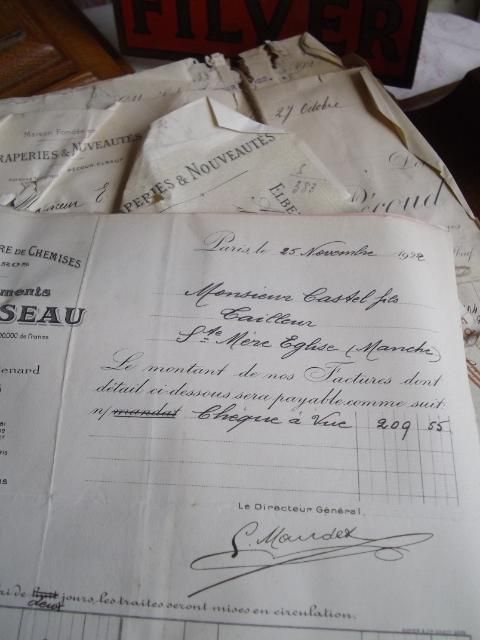 FILVER
27 Octobre
Maison Fondée
DRAPERIES & NUVEAUTÉS
Monsieur E
PERIES & NOUVEAUTÉS
5
383
ELBE
RE DE CHEMISES
ROS
ments
SEAU
000.000 de Francs
enard
Paris, le 25 Novembre 1922
Monsieur Castel fils
Tailleur
Ste Mère Eglise (Manche)
Le montant de nos Factures dont
détail ci-dessous sera payable comme suit:
n/ mandat Chèque à Vue 209 55
Le Directeur Général,
G. Mandex
deux
jours, les traites seront mises en circulation.